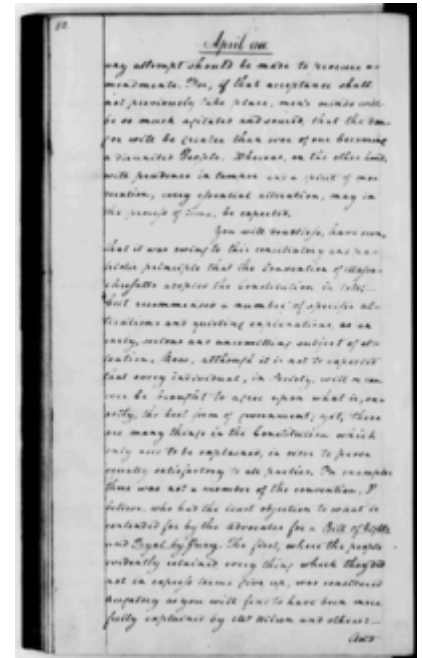 82.
April 1788.
any attempt should be made to procure a-
mendments. For, if that acceptance shall
not previously take place, men's minds will
be so much agitated and soured, that the dan-
ger will be greater than ever of our becoming
a disunited People. Whereas, on the other hand,
with prudence in temper and a spirit of mo-
deration, every essential alteration, may in
the process of time, be expected.
You will doubtless, have seen,
that it was owing to this conciliatory and pa-
triotic principle that the Convention of Massa-
chusetts adopted the Constitution in toto;—
but recommended a number of specific al-
terations and quieting explanations, as an
early, serious and unremitting subject of at-
tention. Now, although it is not to expected
that every individual, in Society, will or can
ever be brought to agree upon what is, ex-
actly, the best form of government; yet, there
are many things in the Constitution which
only need to be explained, in order to prove
equally satisfactory to all parties. For example:
there was not a member of the convention, I
believe, who had the least objection to what is
contended for by the Advocates for a Bill of Rights
and Tryal by Jury. The first, where the people
evidently retained every thing which they did
not in express terms give up, was considered
nugatory as you will find to have been more
fully explained by Mr Wilson and others:—
And